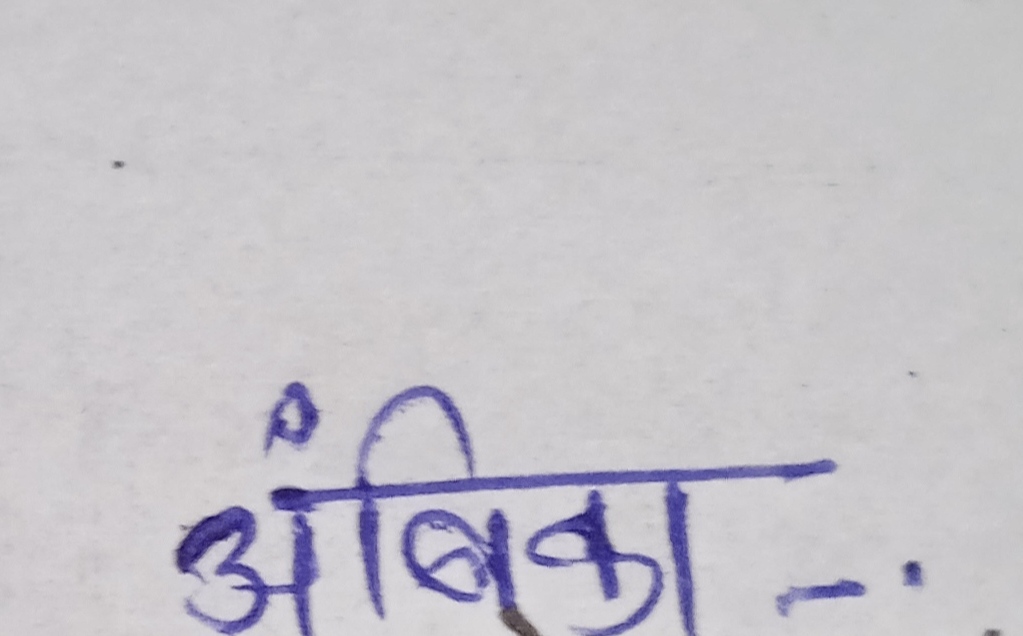 अंबिका -.